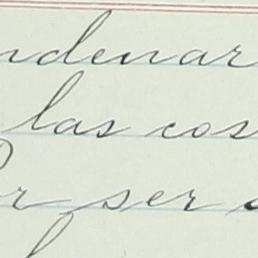 ndenar
las cos
Por ser